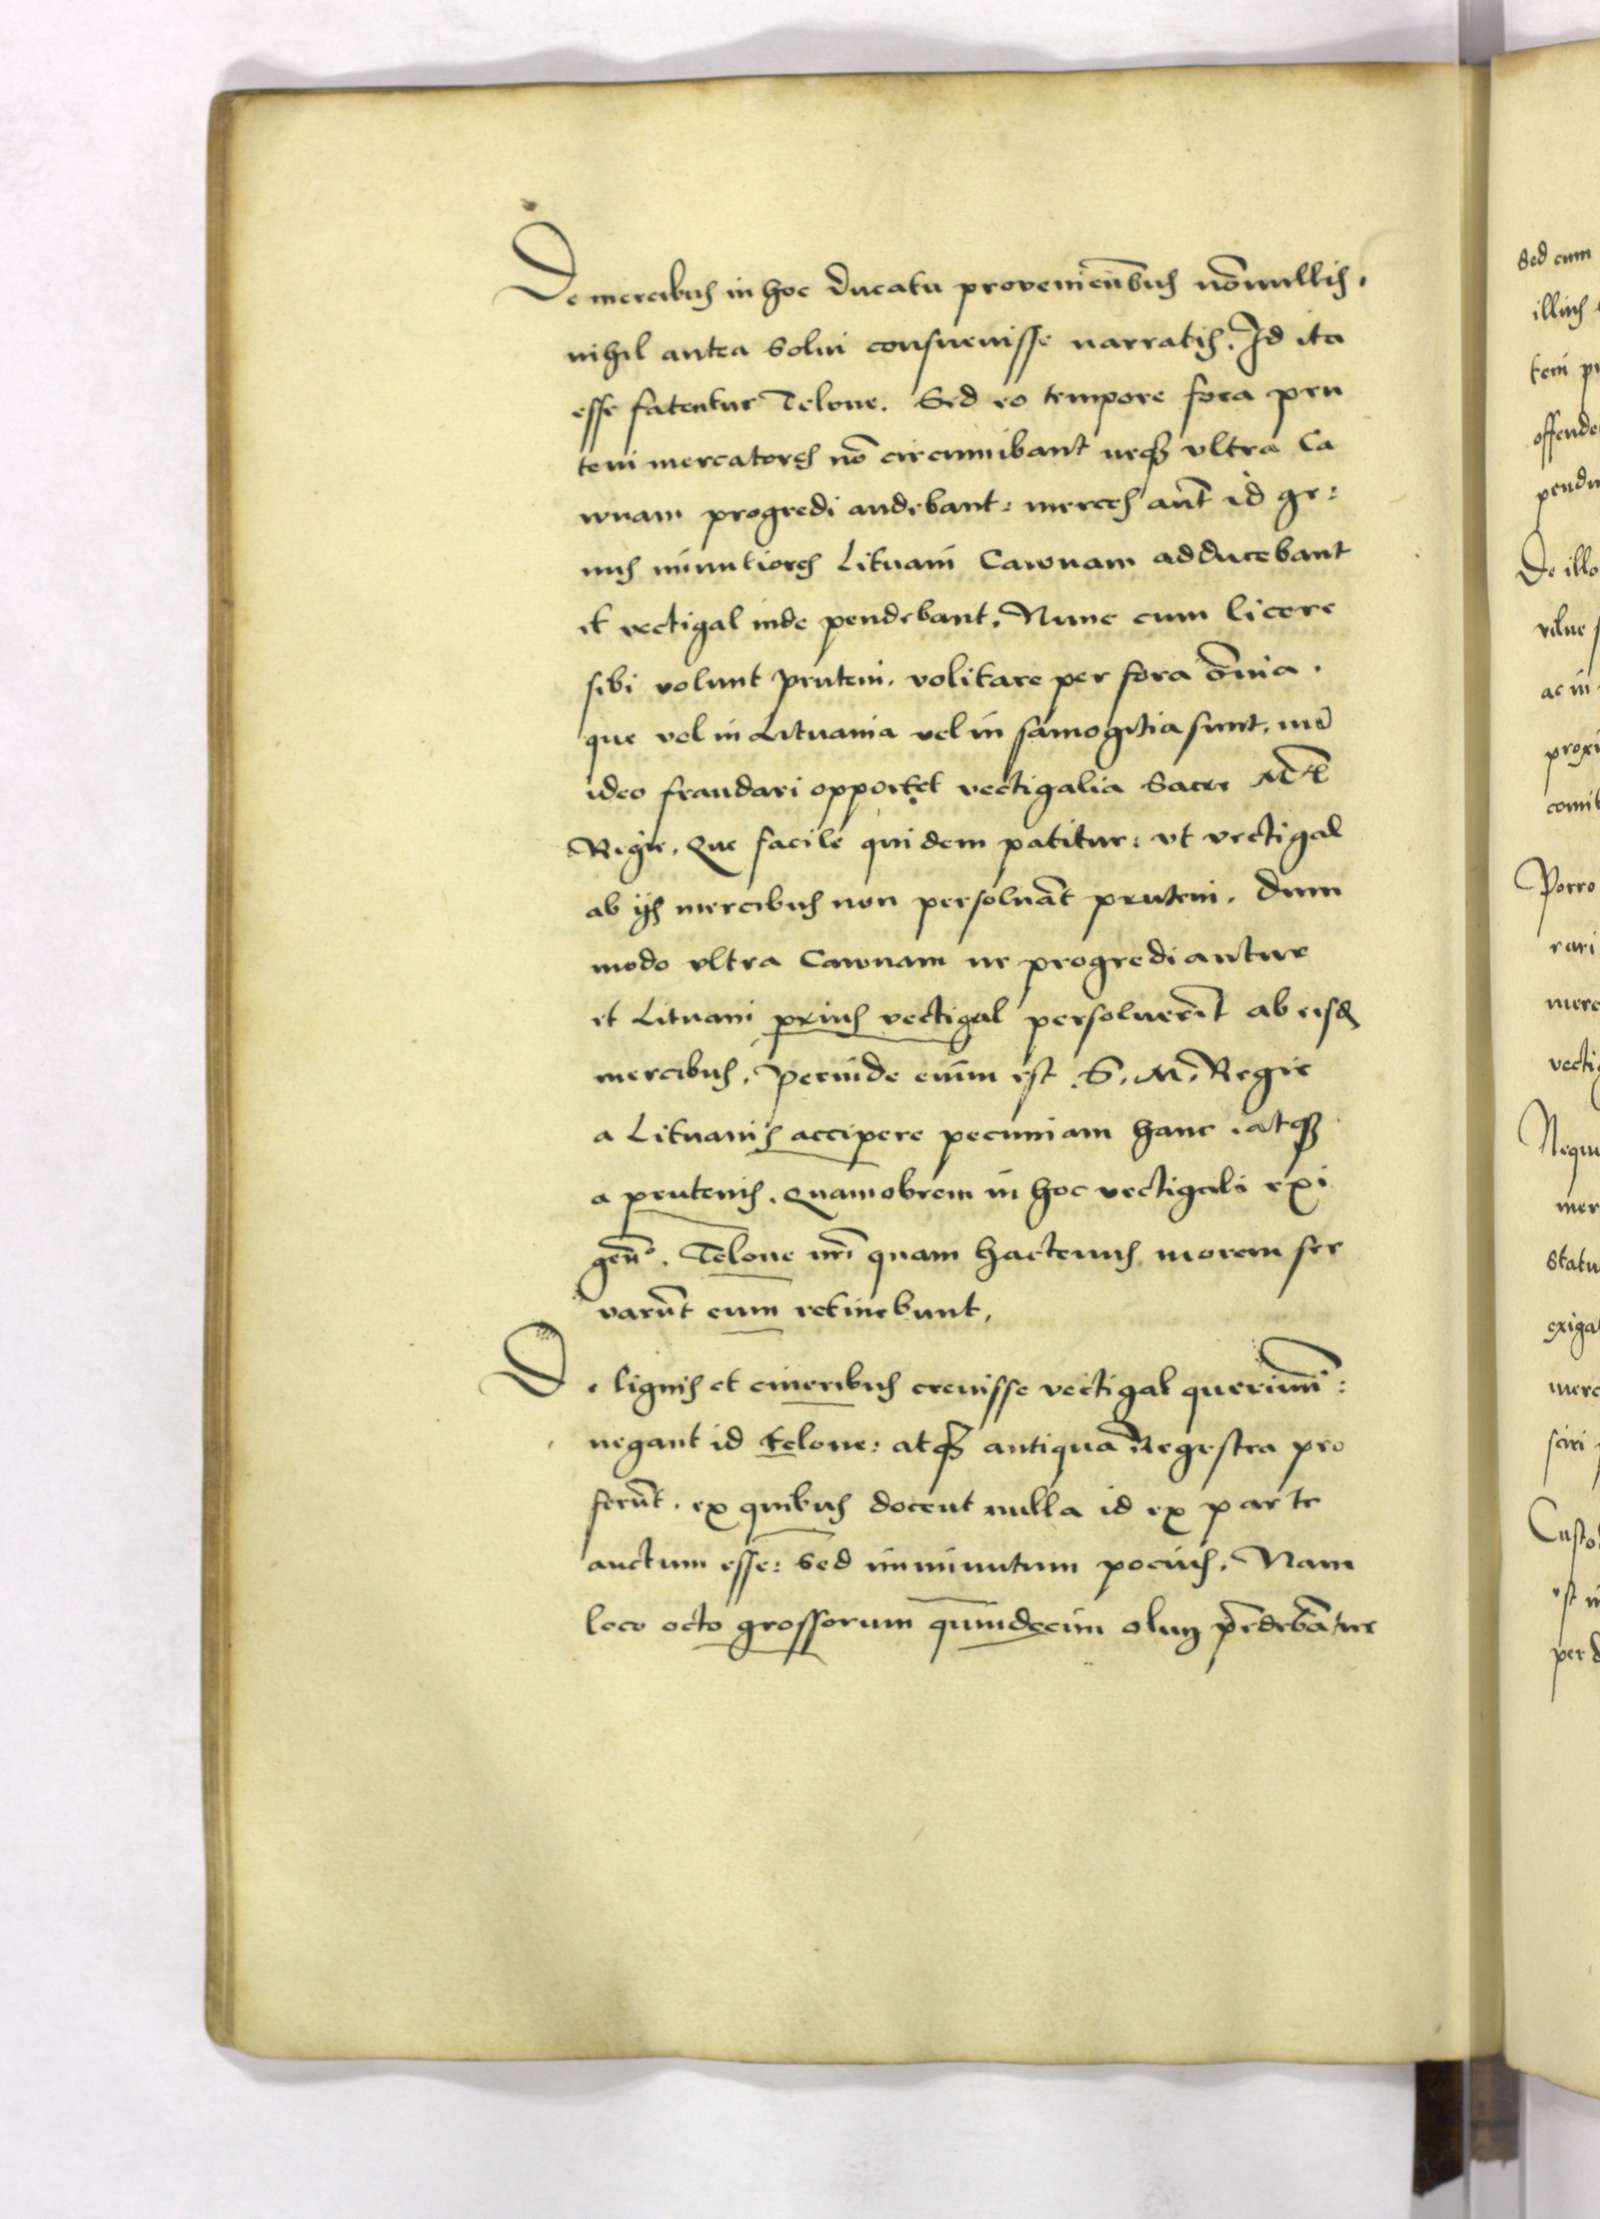 De mercibus in hoc ducatu proveniẽtibus nõnullis,
nihil antea Solui consuevisse narratis. Id ita
esse fatentur Telone. Sed eo tempore fora pru
teni mercatores nõ circumibant neqȝ vltra Ca
wnam progredi audebant: merces aut̃ id ge:
nus minutiores Lituani Cawnam adducebant
et vectigal inde pendebant. Nunc cum licere
sibi volunt pruteni, volitare per fora õmnia.
que vel in Lituania vel in samogitia sunt,
ideo fraudari opportet vectigalia Sacre M^tis
Regie. Que facile quidem patitur: vt vectigal
ab ijs mercibus non persoluãt pruteni, dum
modo vltra Cawnam ne progrediantur
et Lituani prius vectigal persoluerĩt ab eisd̃
mercibus. Perinde enim est S. M. Regie
a Lituanis accipere pecuniam hanc, atqȝ
a prutenis. Quamobrem in hoc vectigali exi
geñ°. Telone nr̃i quam hactenus morem ser
varũt eum retinebunt.
De lignis et cineribus crevisse vectigal querimĩ:
negant id telone: atqȝ antiqua Regestra pro
ferũt. ex quibus docent nulla id ex parte
auctum esse: Sed imminutum pocius. Nam
loco octo grossorum quindecim olim pẽdebãtur
sed cum
illius
teni pr
offende
De illo
ac in
comit
Porro
rari
merc
vecti
Nequ
mer
statu
exiga
merc
Custo
est
per d